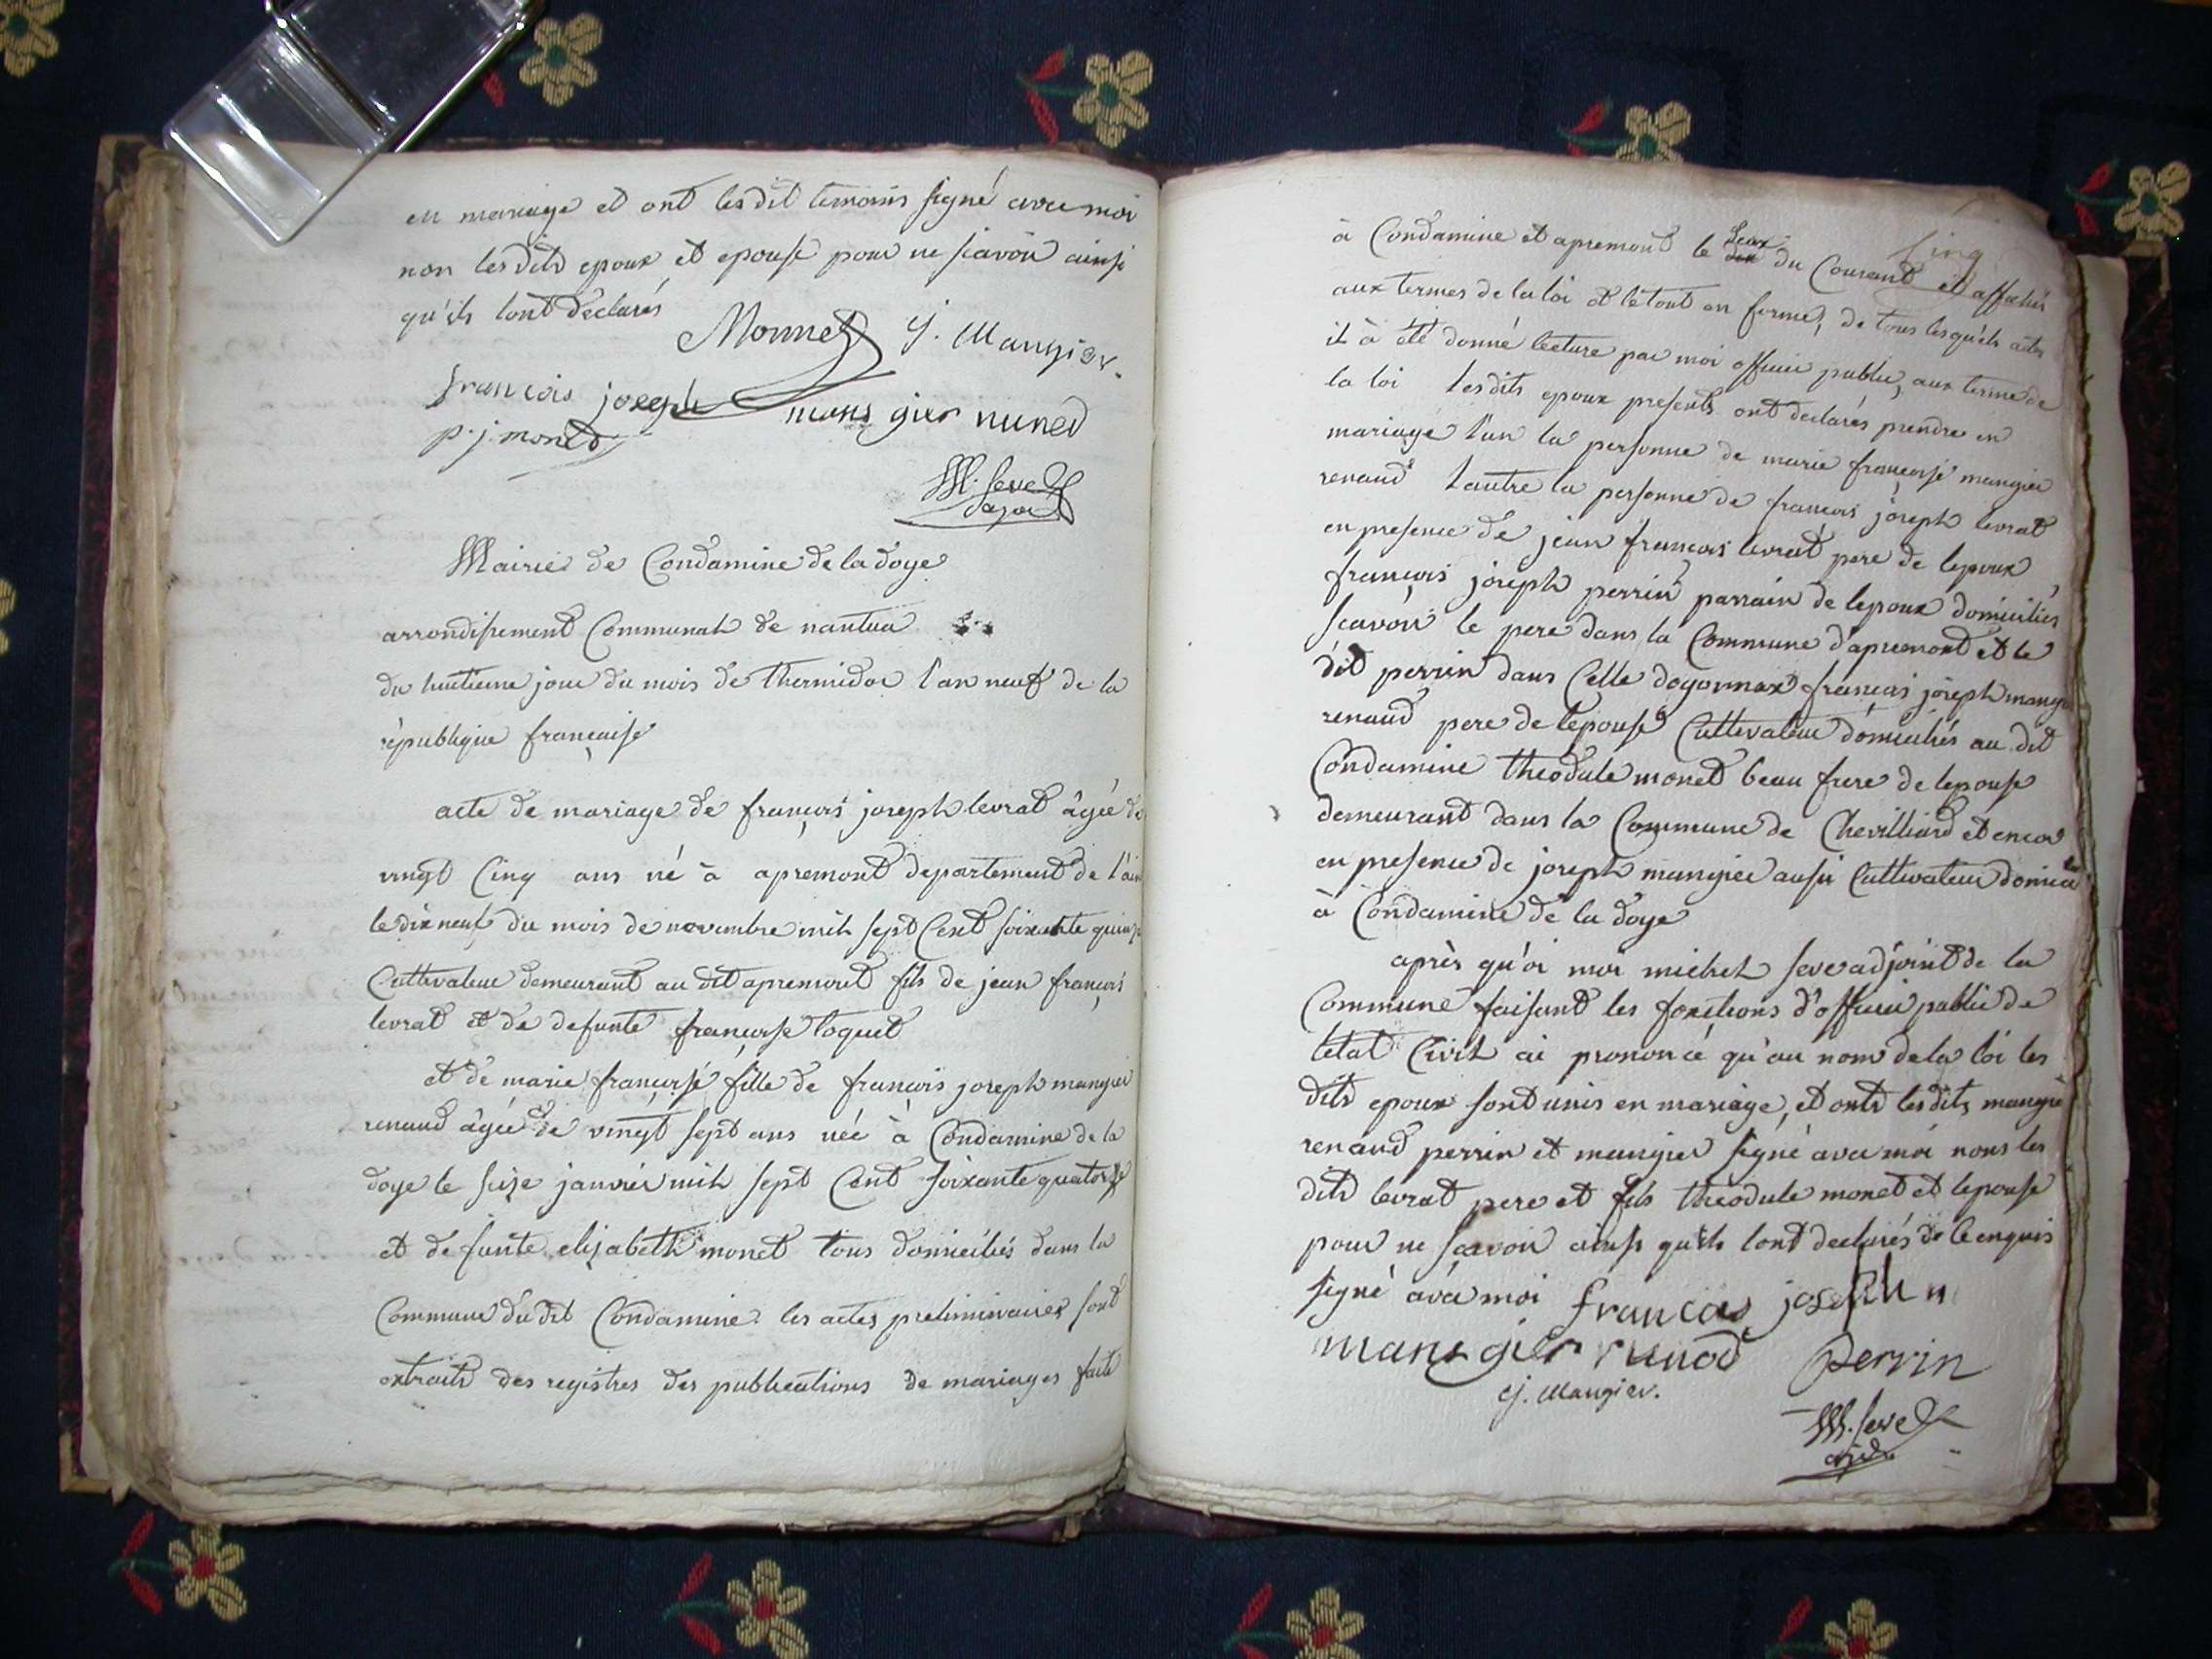 en mariage et ont lesdit temoins signé avec moi
non lesdits epoux et epouse pour ne scavoir ainsi
qu'ils lont declarés
Monnet J. Mangier.
françois joseph mans gier runed
p. j. monet
M. Seve
Mairie de Condamine de la doye
arrondissement Communal de nantua
du huitieme jour du mois de thermidor l'an neuf de la
république française
acte de mariage de françois joseph levrat âgée de
vingt Cinq ans né à apremont departement de l'ain
le dix neuf du mois de novembre mil sept Cent soixante quinze
Cultivateur demeurant au dit apremont fils de jean françois
levrat et de defunte françoise loquet
et de marie françoise fille de françois joseph mangier
renaud âgée de vingt sept ans née à Condamine de la
doye le seize janvier mil sept Cent soixante quatorze
et defunte elizabeth monet tous domiciliés dans la
Commune du dit Condamine les actes preliminaires sont
extraits des registres des publications de mariages faite
Cinq
à Condamine et apremont le deux du Courant et affichés
aux termes de la loi et le tout en forme, de tous lesquels actes
il à été donné lecture par moi officier public, aux terme de
la loi lesdits epoux presents ont declarés prendre en
mariage l'un la personne de marie françoise mangier
renaud l'autre la personne de françois joseph levrat
en presence de jean françois levrat pere de lepoux
françois joseph perrin parrain de lepoux domiciliés
scavoir le pere dans la Commune d'apremont et le
dit perrin dans Celle doyonnax françois joseph mangier
renaud pere de lepouse Cultivateur domiciliés au dit
Condamine théodule monet beau frere de lepouse
demeurant dans la Commune de Chevilliard et encor
en presence de joseph mangier aussi Cultivateur domicilié
à Condamine de la doye
après qu'oi moi michel seve adjoint de la
Commune faisant les fonctions d'officier public de
letat Civil ai prononcé qu'au nom de la loi les
dits epoux sont unis en mariage, et onts lesdits mangier
renaud perrin et mangier signé avec moi nons les
dits levrat pere et fils théodule monet et lepouse
pour ne scavoir ainsi qu'ils lont declarés de ce enquis
signé avec moi françois joseph
mans gier runod perrin
J. Mangier.
M. Seve
adjt